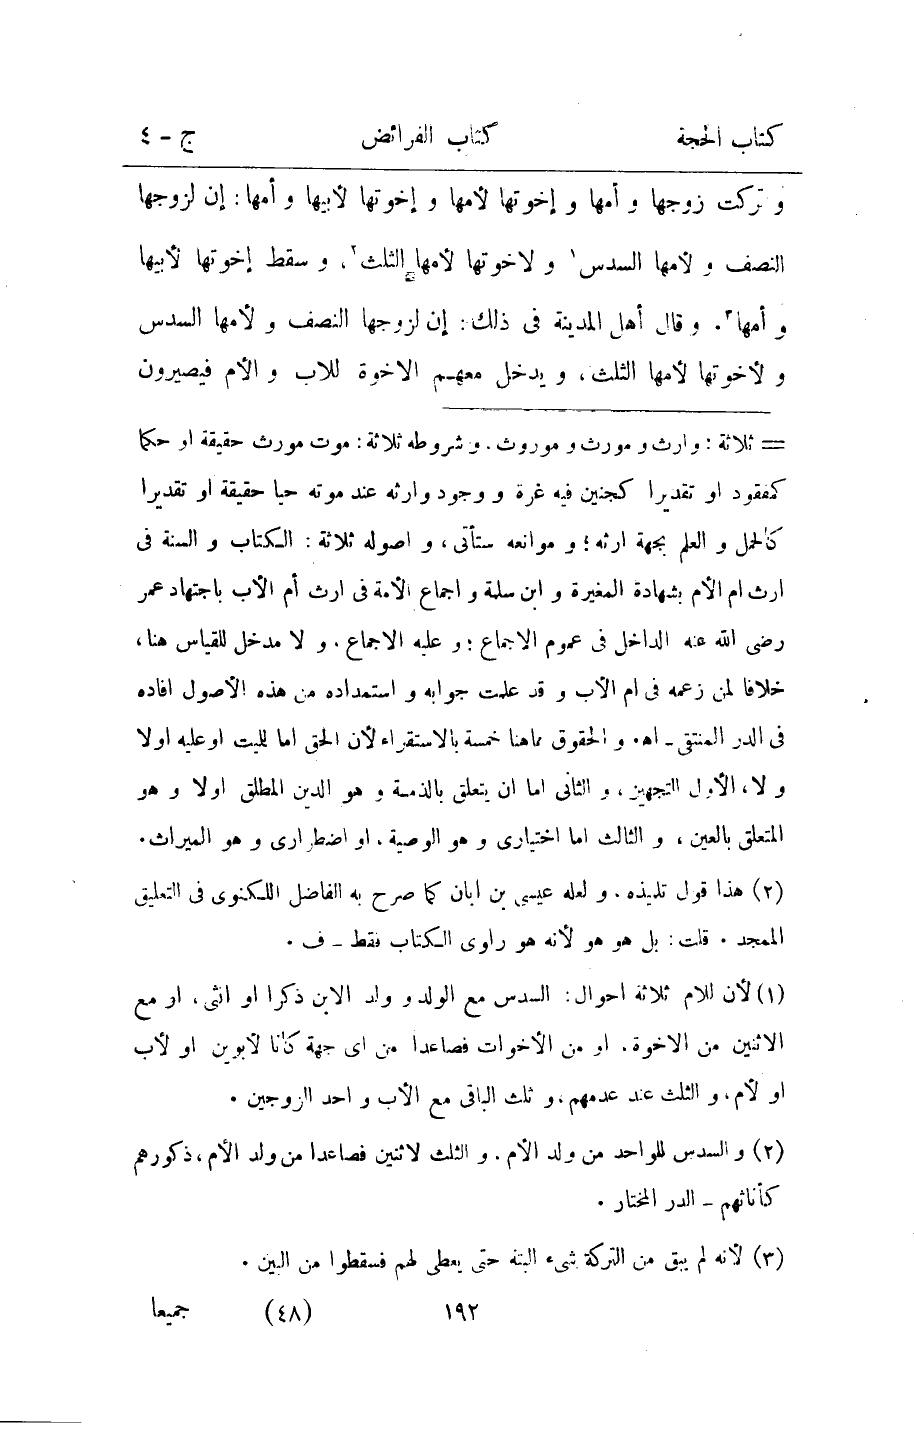 كتاب الحجة كتاب الفرائض ج - ٤
و تركت زوجها و أمها و إخوتها لأمها و إخوتها لأبيها و أمها: إن لزوجها
النصف و لأمها السدس١ و لاخوتها لأمها الثلث٢، و سقط إخوتها لأبيها
و أمها٣. و قال أهل المدينة فى ذلك: إن لزوجها النصف و لأمها السدس
و لأخوتها لأمها الثلث، و يدخل معهم الاخوة للاب و الأم فيصيرون
= ثلاثة: وارث و مورث و موروث. و شروطه ثلاثة: موت مورث حقيقة او حكما
كمفقود او تقديرا كجنين فيه غرة و وجود وارثه عند موته حيا حقيقة او تقديرا
كالحمل و العلم بجهة ارثه؛ و موانعه ستأتى، و اصوله ثلاثة: الكتاب و السنة فى
ارث ام الأم بشهادة المغيرة و ابن سلمة و اجماع الأمة فى ارث أم الأب باجتهاد عمر
رضى الله عنه الداخل فى عموم الاجماع؛ و عليه الاجماع. و لا مدخل للقياس هنا،
خلافا لمن زعمه فى ام الأب و قد علمت جوابه و استمداده من هذه الأصول افاده
فى الدر المنتقى - اه. و الحقوق ماهنا خمسة بالاستقراء لأن الحق اما للميت او عليه اولا
و لا، الأول التجهيز، و الثانى اما ان يتعلق بالذمة و هو الدين المطلق اولا و هو
المتعلق بالعين، و الثالث اما اختيارى و هو الوصية، او اضطرارى و هو الميراث.
(٢) هذا قول تلميذه. و لعله عيسى بن ابان كما صرح به الفاضل اللكنوى فى التعليق
الممجد. قلت: بل هو هو لأنه هو راوى الكتاب فقط - ف.
(١) لأن للام ثلاثة احوال: السدس مع الولد و ولد الابن ذكرا او انثى، او مع
الاثنين من الاخوة. او من الأخوات فصاعدا من اى جهة كانا لأبوين او لأب
او لأم، و الثلث عند عدمهم، و ثلث الباقى مع الأب و احد الزوجين.
(٢) و السدس للواحد من ولد الأم. و الثلث لاثنين فصاعدا من ولد الأم، ذكورهم
كأناثهم - الدر المختار.
(٣) لأنه لم يبق من التركة شىء البتة حتى يعطى لهم فسقطوا من البين.
١٩٢ (٤٨) جميعا